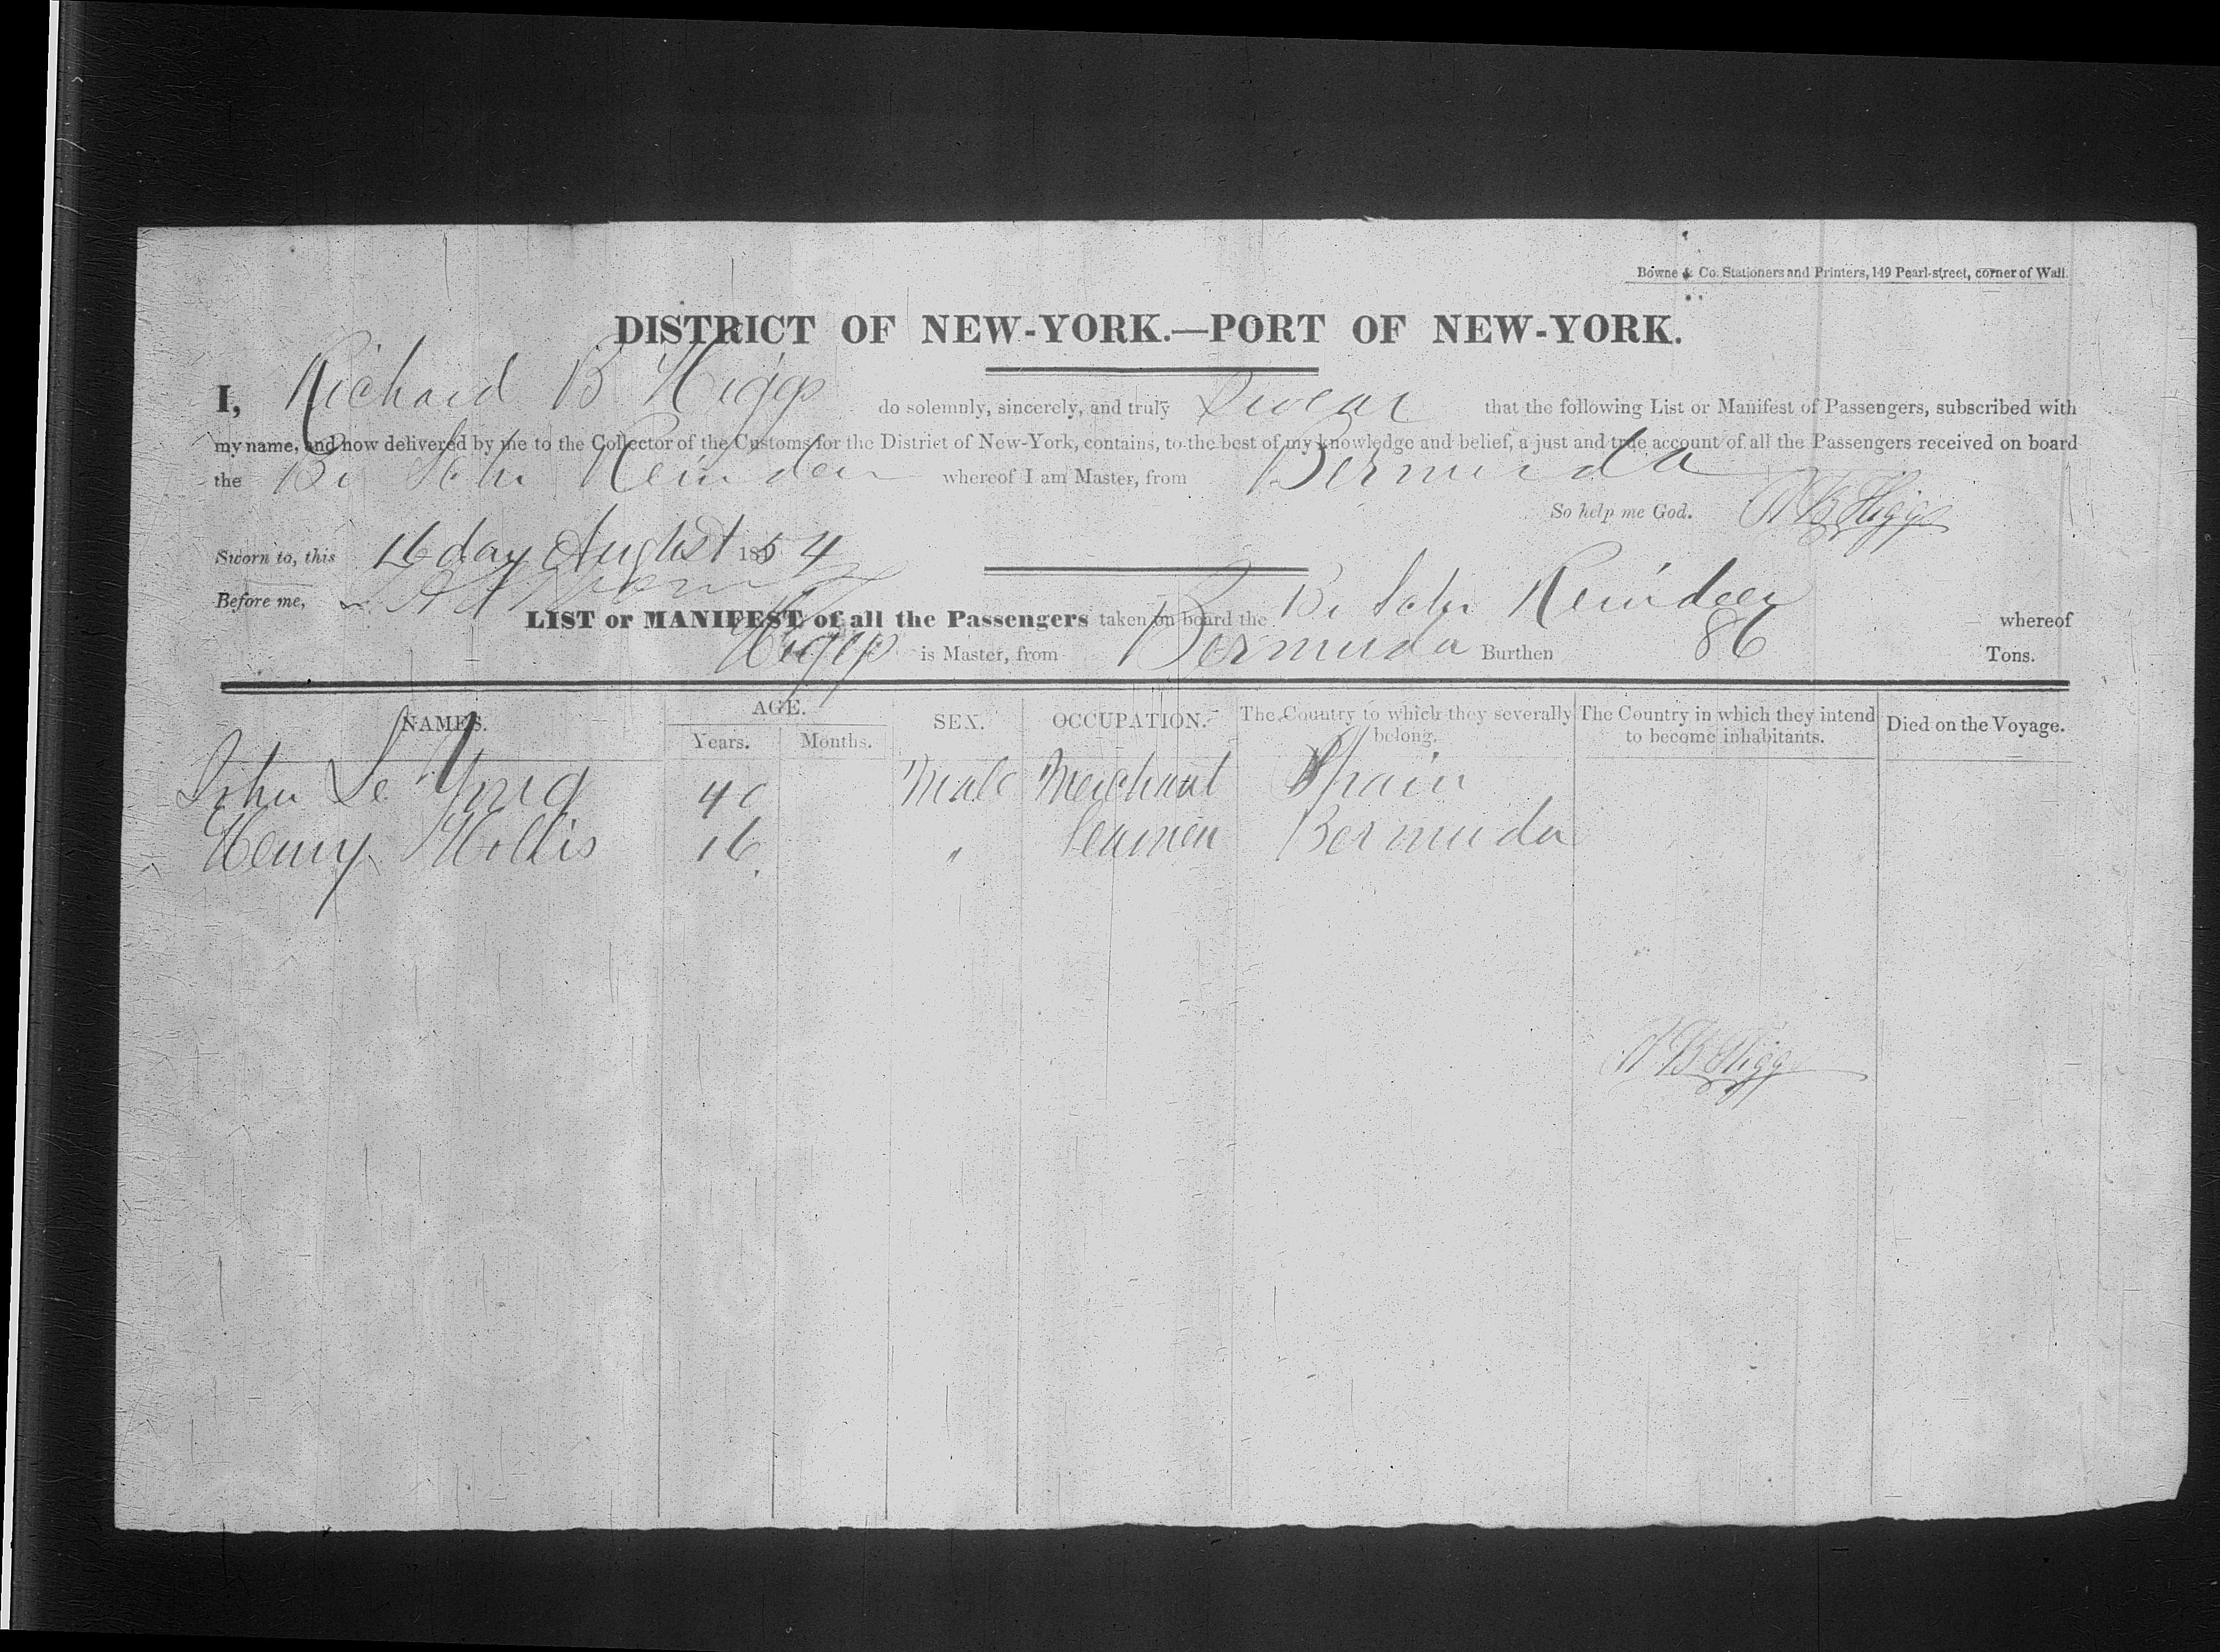 Bowne & Co. Stationers and Printers, 149 Pearl-street, corner of Wall.
DISTRICT OF NEW-YORK.—PORT OF NEW-YORK.
I, Richard B Higgs do solemnly, sincerely, and truly Swear that the following List or Manifest of Passengers, subscribed with
my name, and now delivered by me to the Collector of the Customs for the District of New-York, contains, to the best of my knowledge and belief, a just and true account of all the Passengers received on board
the Br Schr Reindeer whereof I am Master, from Bermuda
So help me God. R B Higgs
Sworn to, this 16 day August 1854
Before me,
LIST or MANIFEST of all the Passengers taken on board the Br Schr Reindeer whereof
Higgs is Master, from Bermuda Burthen 86 Tons.
NAMES. AGE. SEX. OCCUPATION. The Country to which they severally belong. The Country in which they intend to become inhabitants. Died on the Voyage.
Years. Months.
John 40 Male Merchant Spain
Henry Hollis 16 " Seaman Bermuda
R B Higgs